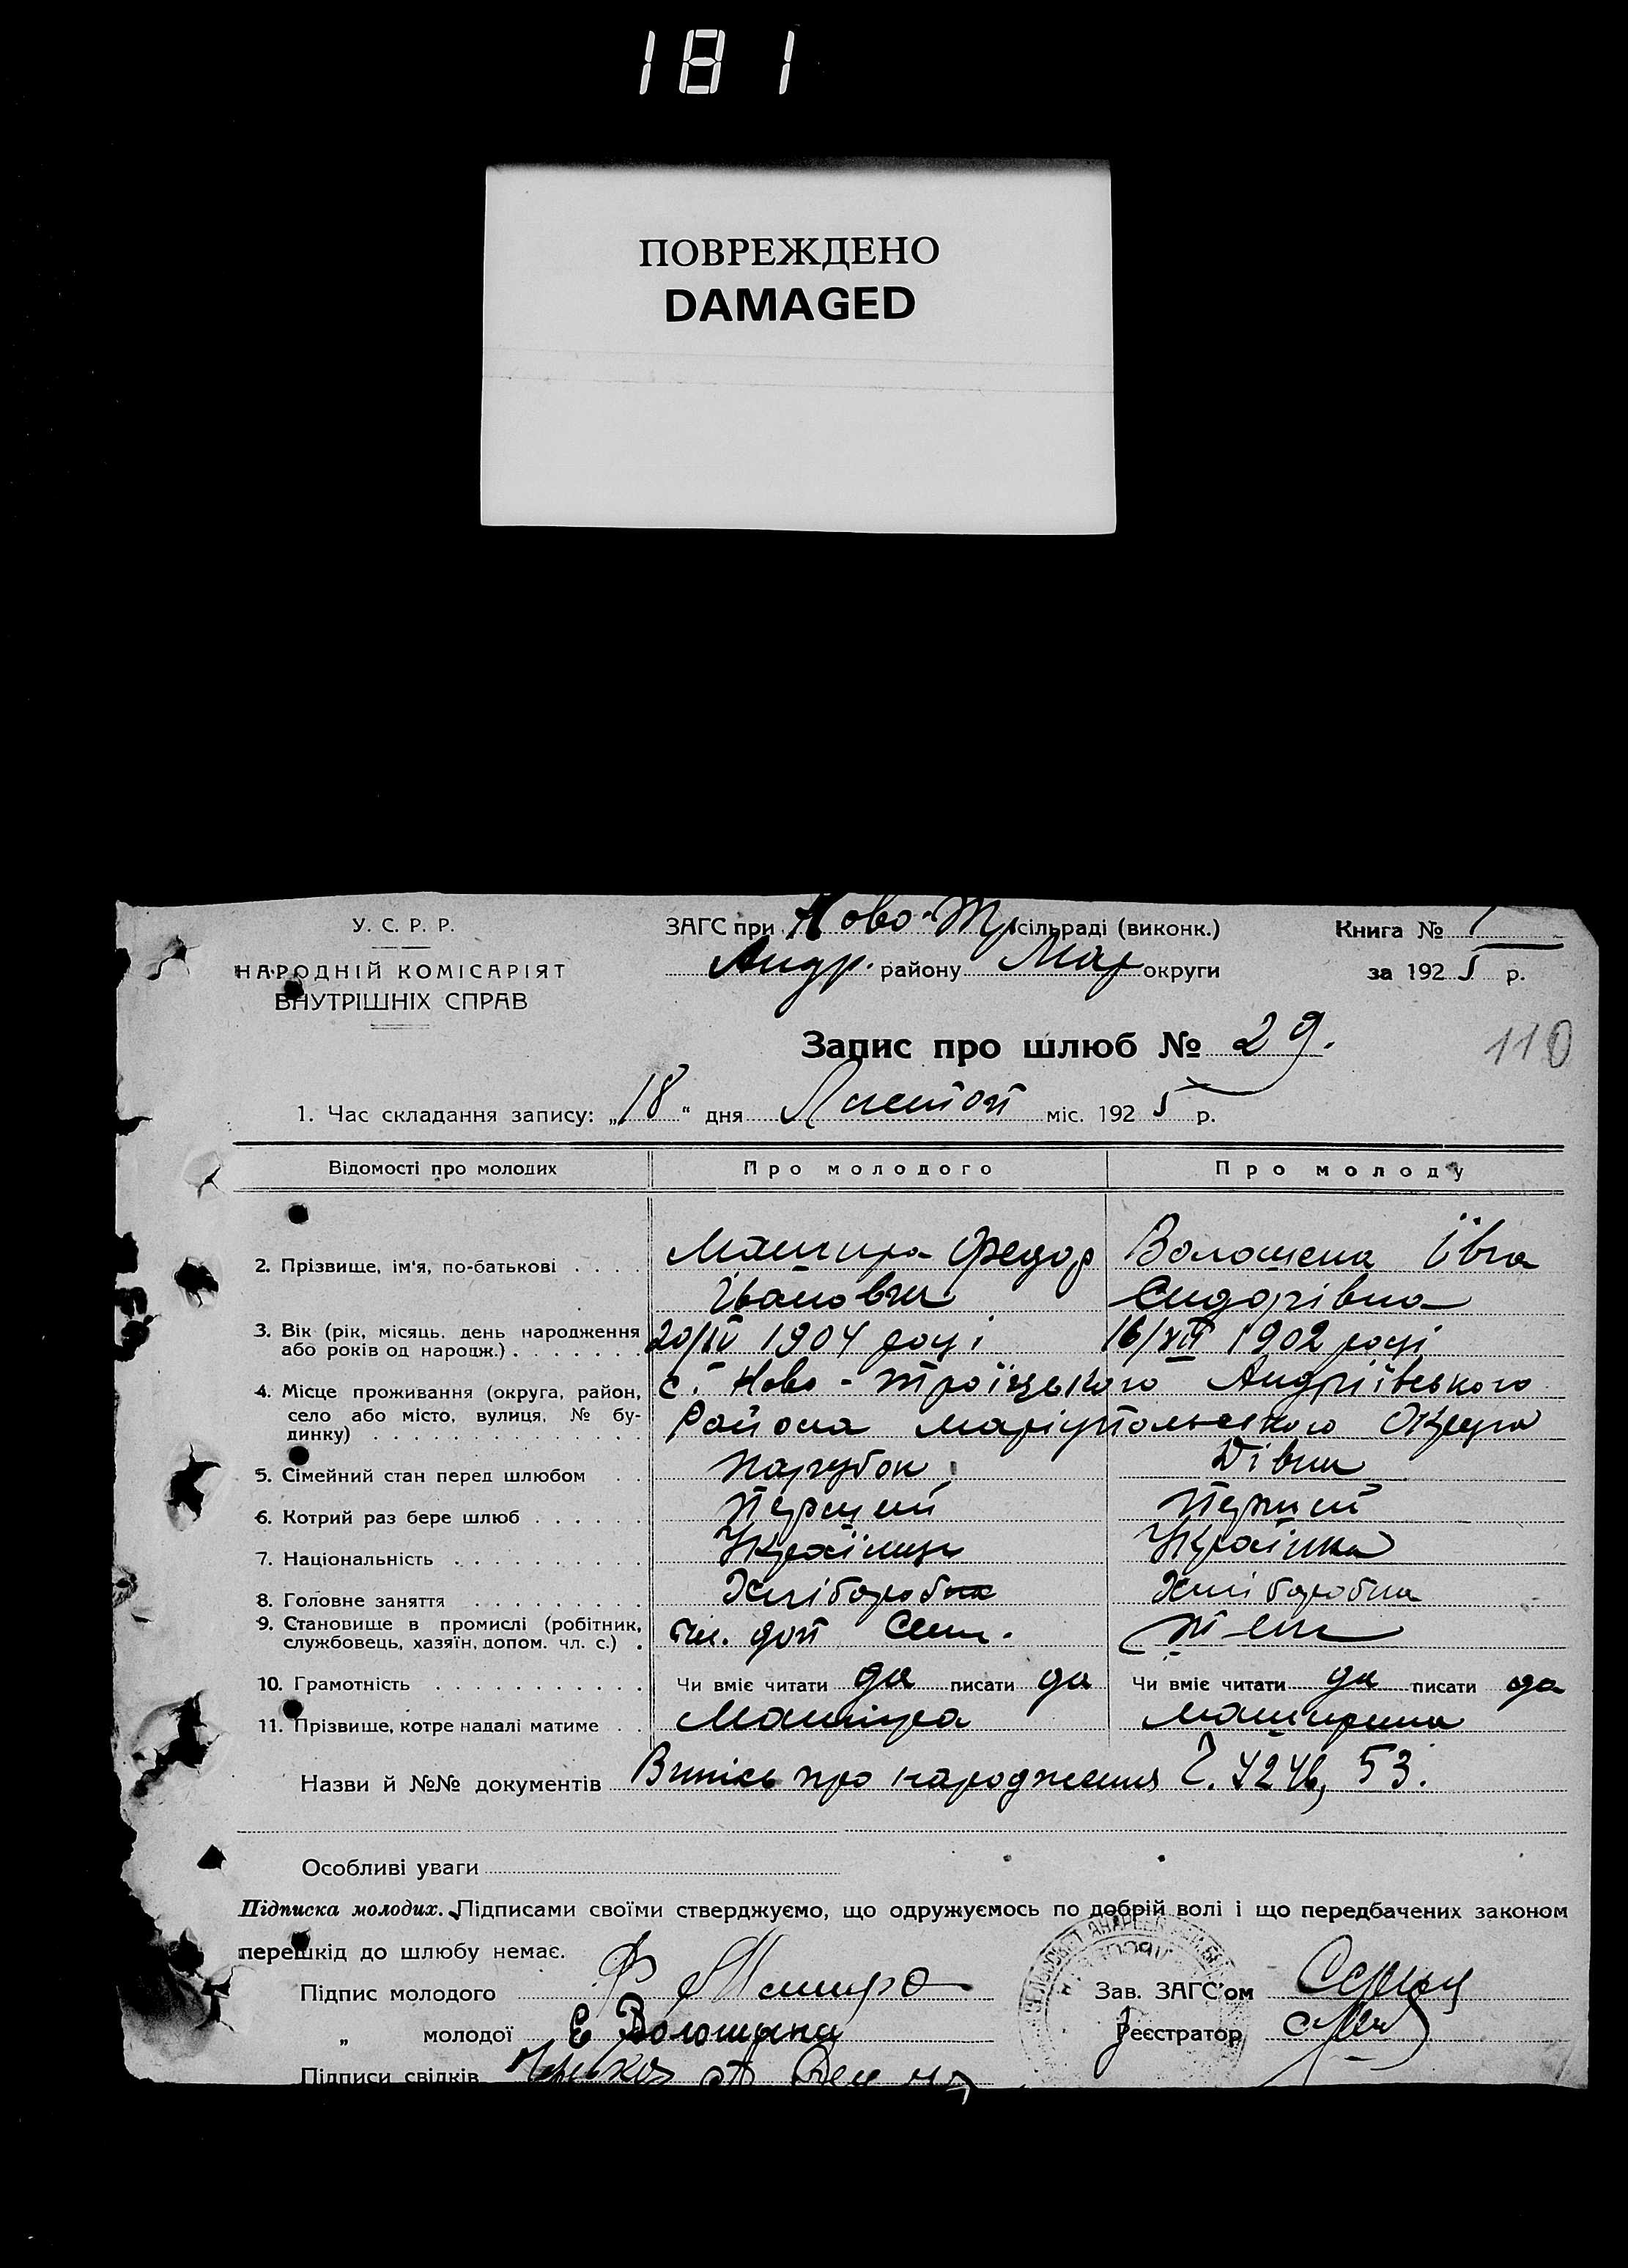 181
ПОВРЕЖДЕНО
DAMAGED
У. С. Р. Р.
НАРОДНІЙ КОМІСАРІЯТ
ВНУТРІШНІХ СПРАВ
ЗАГС при Ново-Тр сільраді (виконк.)
Андр. району Мар округи
Книга № 1
за 1925 р.
Запис про шлюб № 29.
110
1. Час складання запису: „18" дня Листоп міс. 1925 р.
Відомості про молодих Про молодого Про молоду
2. Прізвище, ім'я, по-батькові . . . . Машира Федор Волошена Івга
Іванович Сидорівна
3. Вік (рік, місяць, день народження 20/IV 1904 році 16/XII 1902 році
або років од народж.) . . . . . . .
4. Місце проживання (округа, район, с. Ново-Троїцького Андріївського
село або місто, вулиця, № бу- Района Маріупольського Округа
динку) . . . . . . . . . . . . . .
5. Сімейний стан перед шлюбом . . Парубок Дівка
6. Котрий раз бере шлюб . . . . . . Перший Перший
7. Національність . . . . . . . . . . Українец Українка
8. Головне заняття . . . . . . . . . Хліборобна Хліборобна
9. Становище в промислі (робітник, чл. доп Сем.
службовець, хазяїн, допом. чл. с.) .
10. Грамотність . . . . . . . . . . . Чи вміє читати да писати да Чи вміє читати да писати да
11. Прізвище, котре надалі матиме . . Машира Маширина
Назви й №№ документів Випісь про народження Ч. 53.
Особливі уваги
Підписка молодих. Підписами своїми стверджуємо, що одружуємось по добрій волі і що передбачених законом
перешкід до шлюбу немає.
Підпис молодого Ф Машира Зав. ЗАГС'ом
„ молодої Е Волошина Реєстратор
Підписи свідків